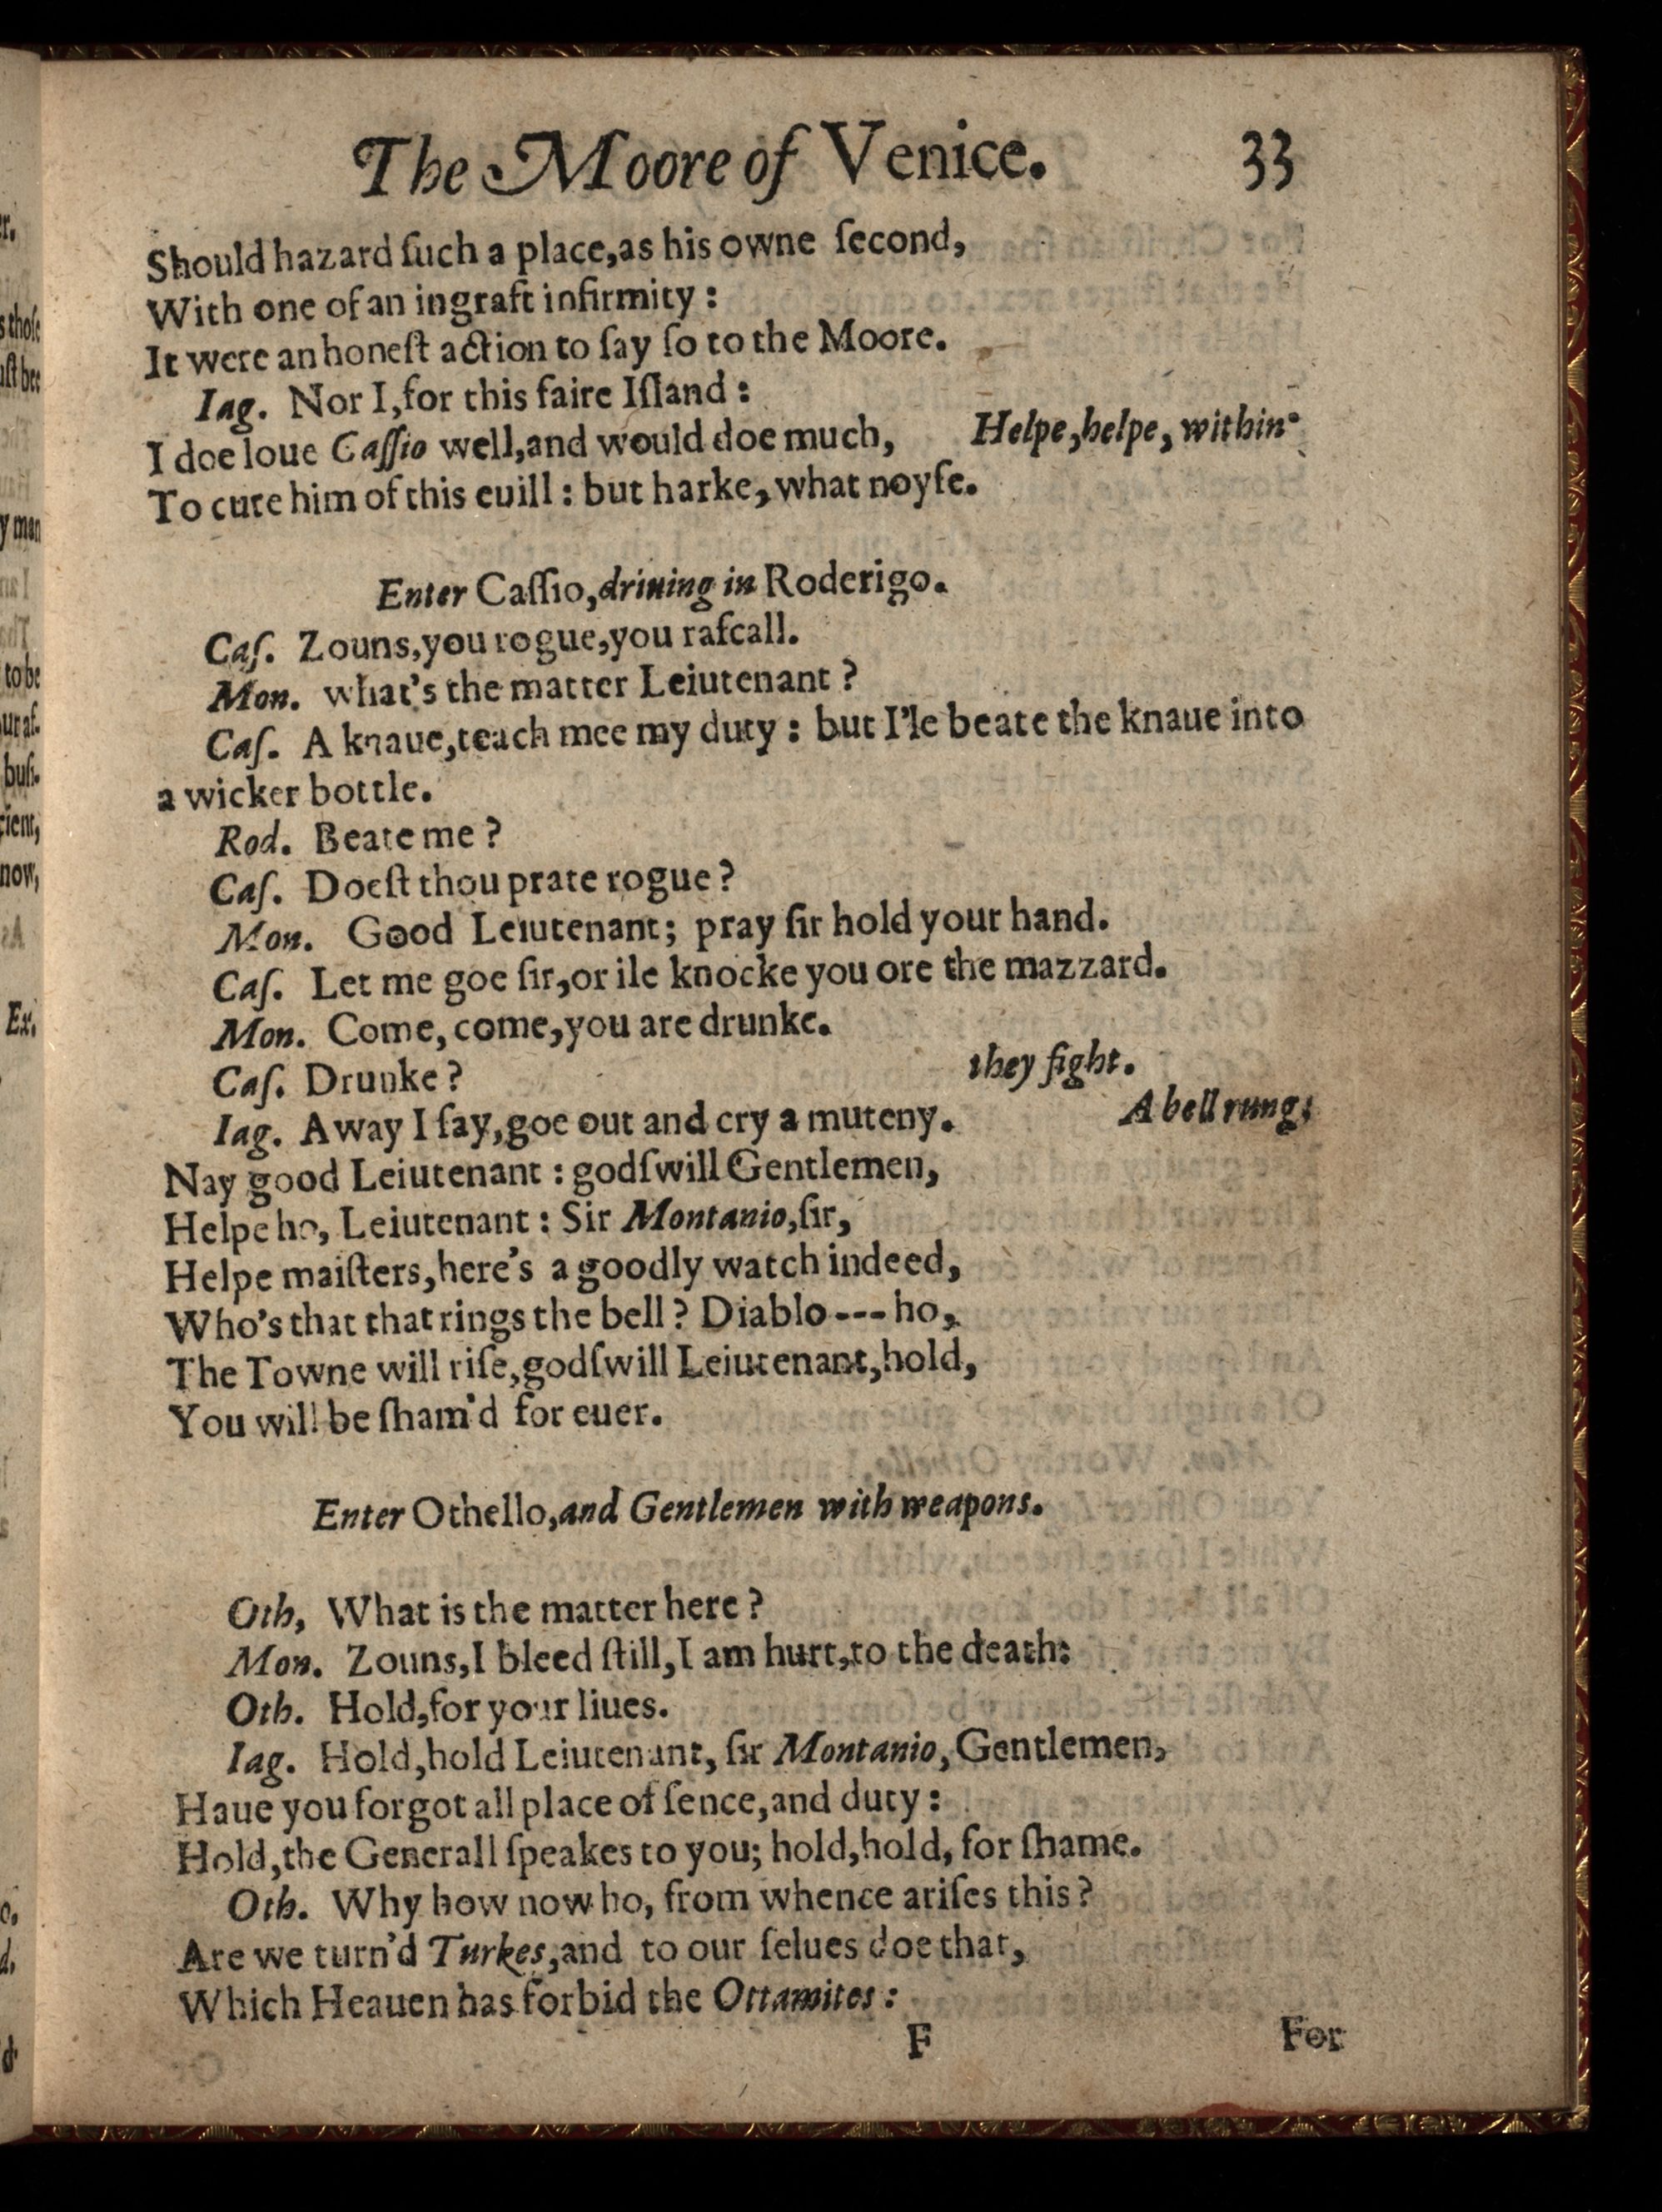 The Moore of Venice. 33
Should hazard ſuch a place,as his owne ſecond,
With one of an ingraft infirmity :
It were an honeſt action to ſay ſo to the Moore.
Iag. Nor I,for this faire Iſland :
I doe loue Caſſio well,and would doe much, Helpe,helpe, within.
To cure him of this euill : but harke, what noyſe.
Enter Caſſio,driuing in Roderigo.
Caſ. Zouns,you rogue,you raſcall.
Mon. what's the matter Leiutenant ?
Caſ. A knaue,teach mee my duty : but I'le beate the knaue into
a wicker bottle.
Rod. Beate me ?
Caſ. Doeſt thou prate rogue ?
Mon. Good Leiutenant; pray ſir hold your hand.
Caſ. Let me goe ſir,or ile knocke you ore the mazzard.
Mon. Come, come,you are drunke.
Caſ. Drunke ? they fight.
Iag. Away I ſay,goe out and cry a muteny. A bell rung:
Nay good Leiutenant : godſwill Gentlemen,
Helpe ho, Leiutenant : Sir Montanio,ſir,
Helpe maiſters,here's a goodly watch indeed,
Who's that that rings the bell ? Diablo --- ho,
The Towne will riſe,godſwill Leiutenant,hold,
You will be ſham'd for euer.
Enter Othello,and Gentlemen with weapons.
Oth, What is the matter here ?
Mon. Zouns,I bleed ſtill,I am hurt,to the death:
Oth. Hold,for your liues.
Iag. Hold,hold Leiutenant, ſir Montanio, Gentlemen,
Haue you forgot all place of ſence,and duty :
Hold,the Generall ſpeakes to you; hold,hold, for ſhame.
Oth. Why how now ho, from whence ariſes this ?
Are we turn'd Turkes,and to our ſelues doe that,
Which Heauen has forbid the Ottamites :
F For